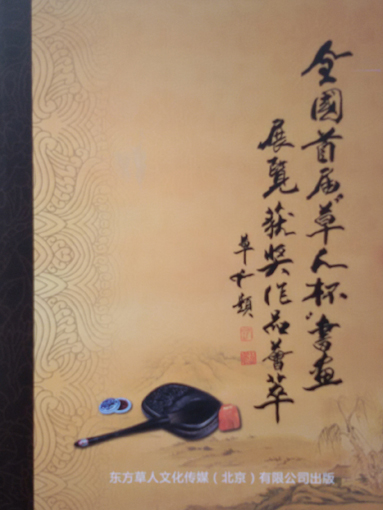 全國首届“草人杯”書畫
展覽获奖作品薈萃
草人題
东方草人文化传媒（北京）有限公司出版